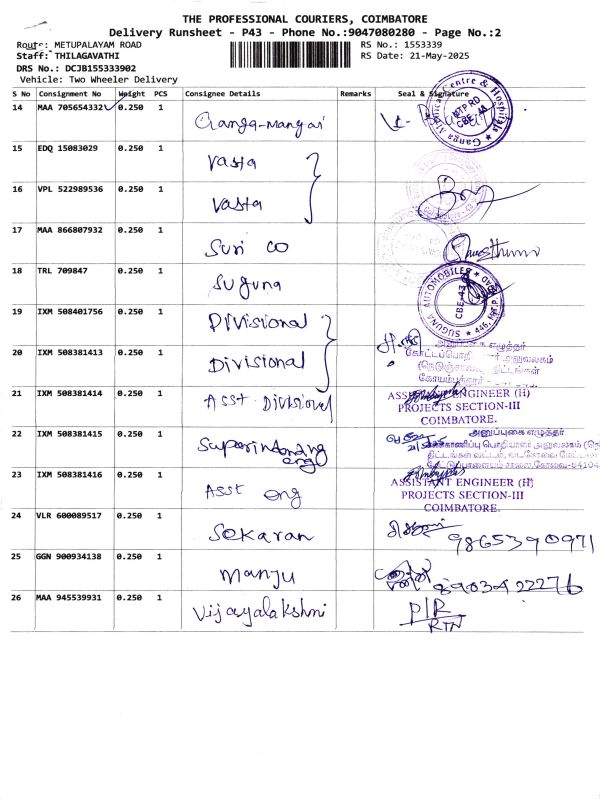 THE PROFESSIONAL COURIERS, COIMBATORE
Delivery Runsheet - P43 - Phone No.:9047080280 - Page No.:2
Route: METUPALAYAM ROAD
RS No.: 1553339
Staff: THILAGAVATHI
RS Date: 21-May-2025
DRS No.: DCJB155333902
Vehicle: Two Wheeler Delivery
S No Consignment No Weight PCS Consignee Details Remarks Seal & Signature
14 MAA 705654332 0.250 1 Ganga-mangai
15 EDQ 15083029 0.250 1 vasta
16 VPL 522989536 0.250 1 vasta
17 MAA 866807932 0.250 1 Suri co
18 TRL 709847 0.250 1 Suguna
SUGUNA AUTOMOBILES
CBE-43
19 IXM 508401756 0.250 1 Divisional
20 IXM 508381413 0.250 1 Divisional
அனுப்புகை எழுத்தர்
கோட்டப்பொறி அலுவலகம்
திட்டங்கள்
21 IXM 508381414 0.250 1 Asst. Divisional
ASSISTANT ENGINEER (H)
PROJECTS SECTION-III
COIMBATORE.
22 IXM 508381415 0.250 1
அனுப்புகை எழுத்தர்
23 IXM 508381416 0.250 1 Asst eng
ASSISTANT ENGINEER (H)
PROJECTS SECTION-III
COIMBATORE.
24 VLR 600089517 0.250 1 Sekaran 9865390971
25 GGN 900934138 0.250 1 manju 8903422276
26 MAA 945539931 0.250 1 Vijayalakshmi P/R
RTN